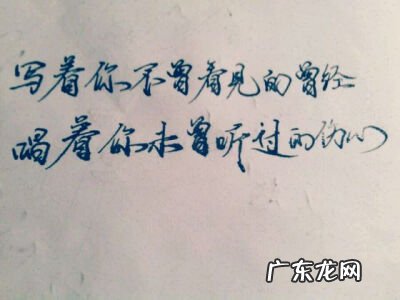 写着你不曾看见的曾经
唱着你未曾听过的伤心
广东龙网